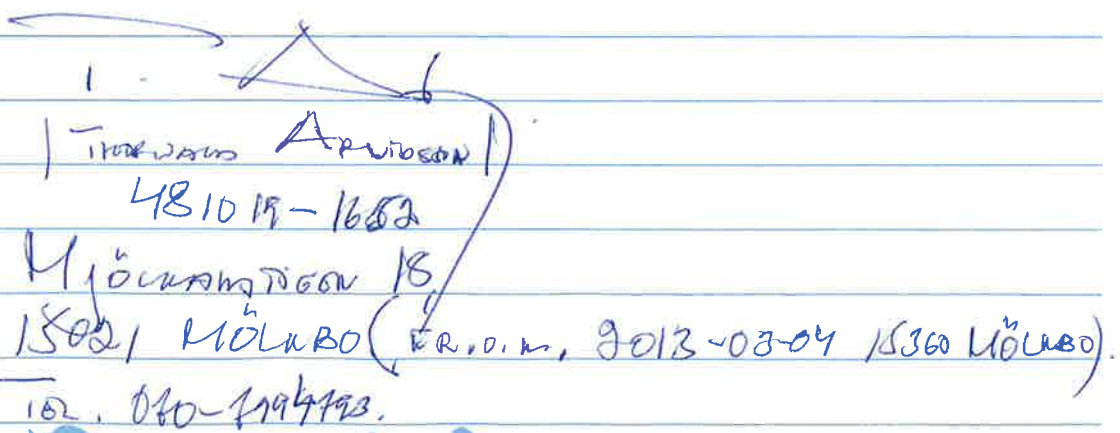 | THORWALD ARVIDSSON |
481019-1652
MJÖLKANGSTIGEN 18
15021 MÖLNBO (FR.O.M. 2013-03-04 15360 MÖLNBO).
TEL.